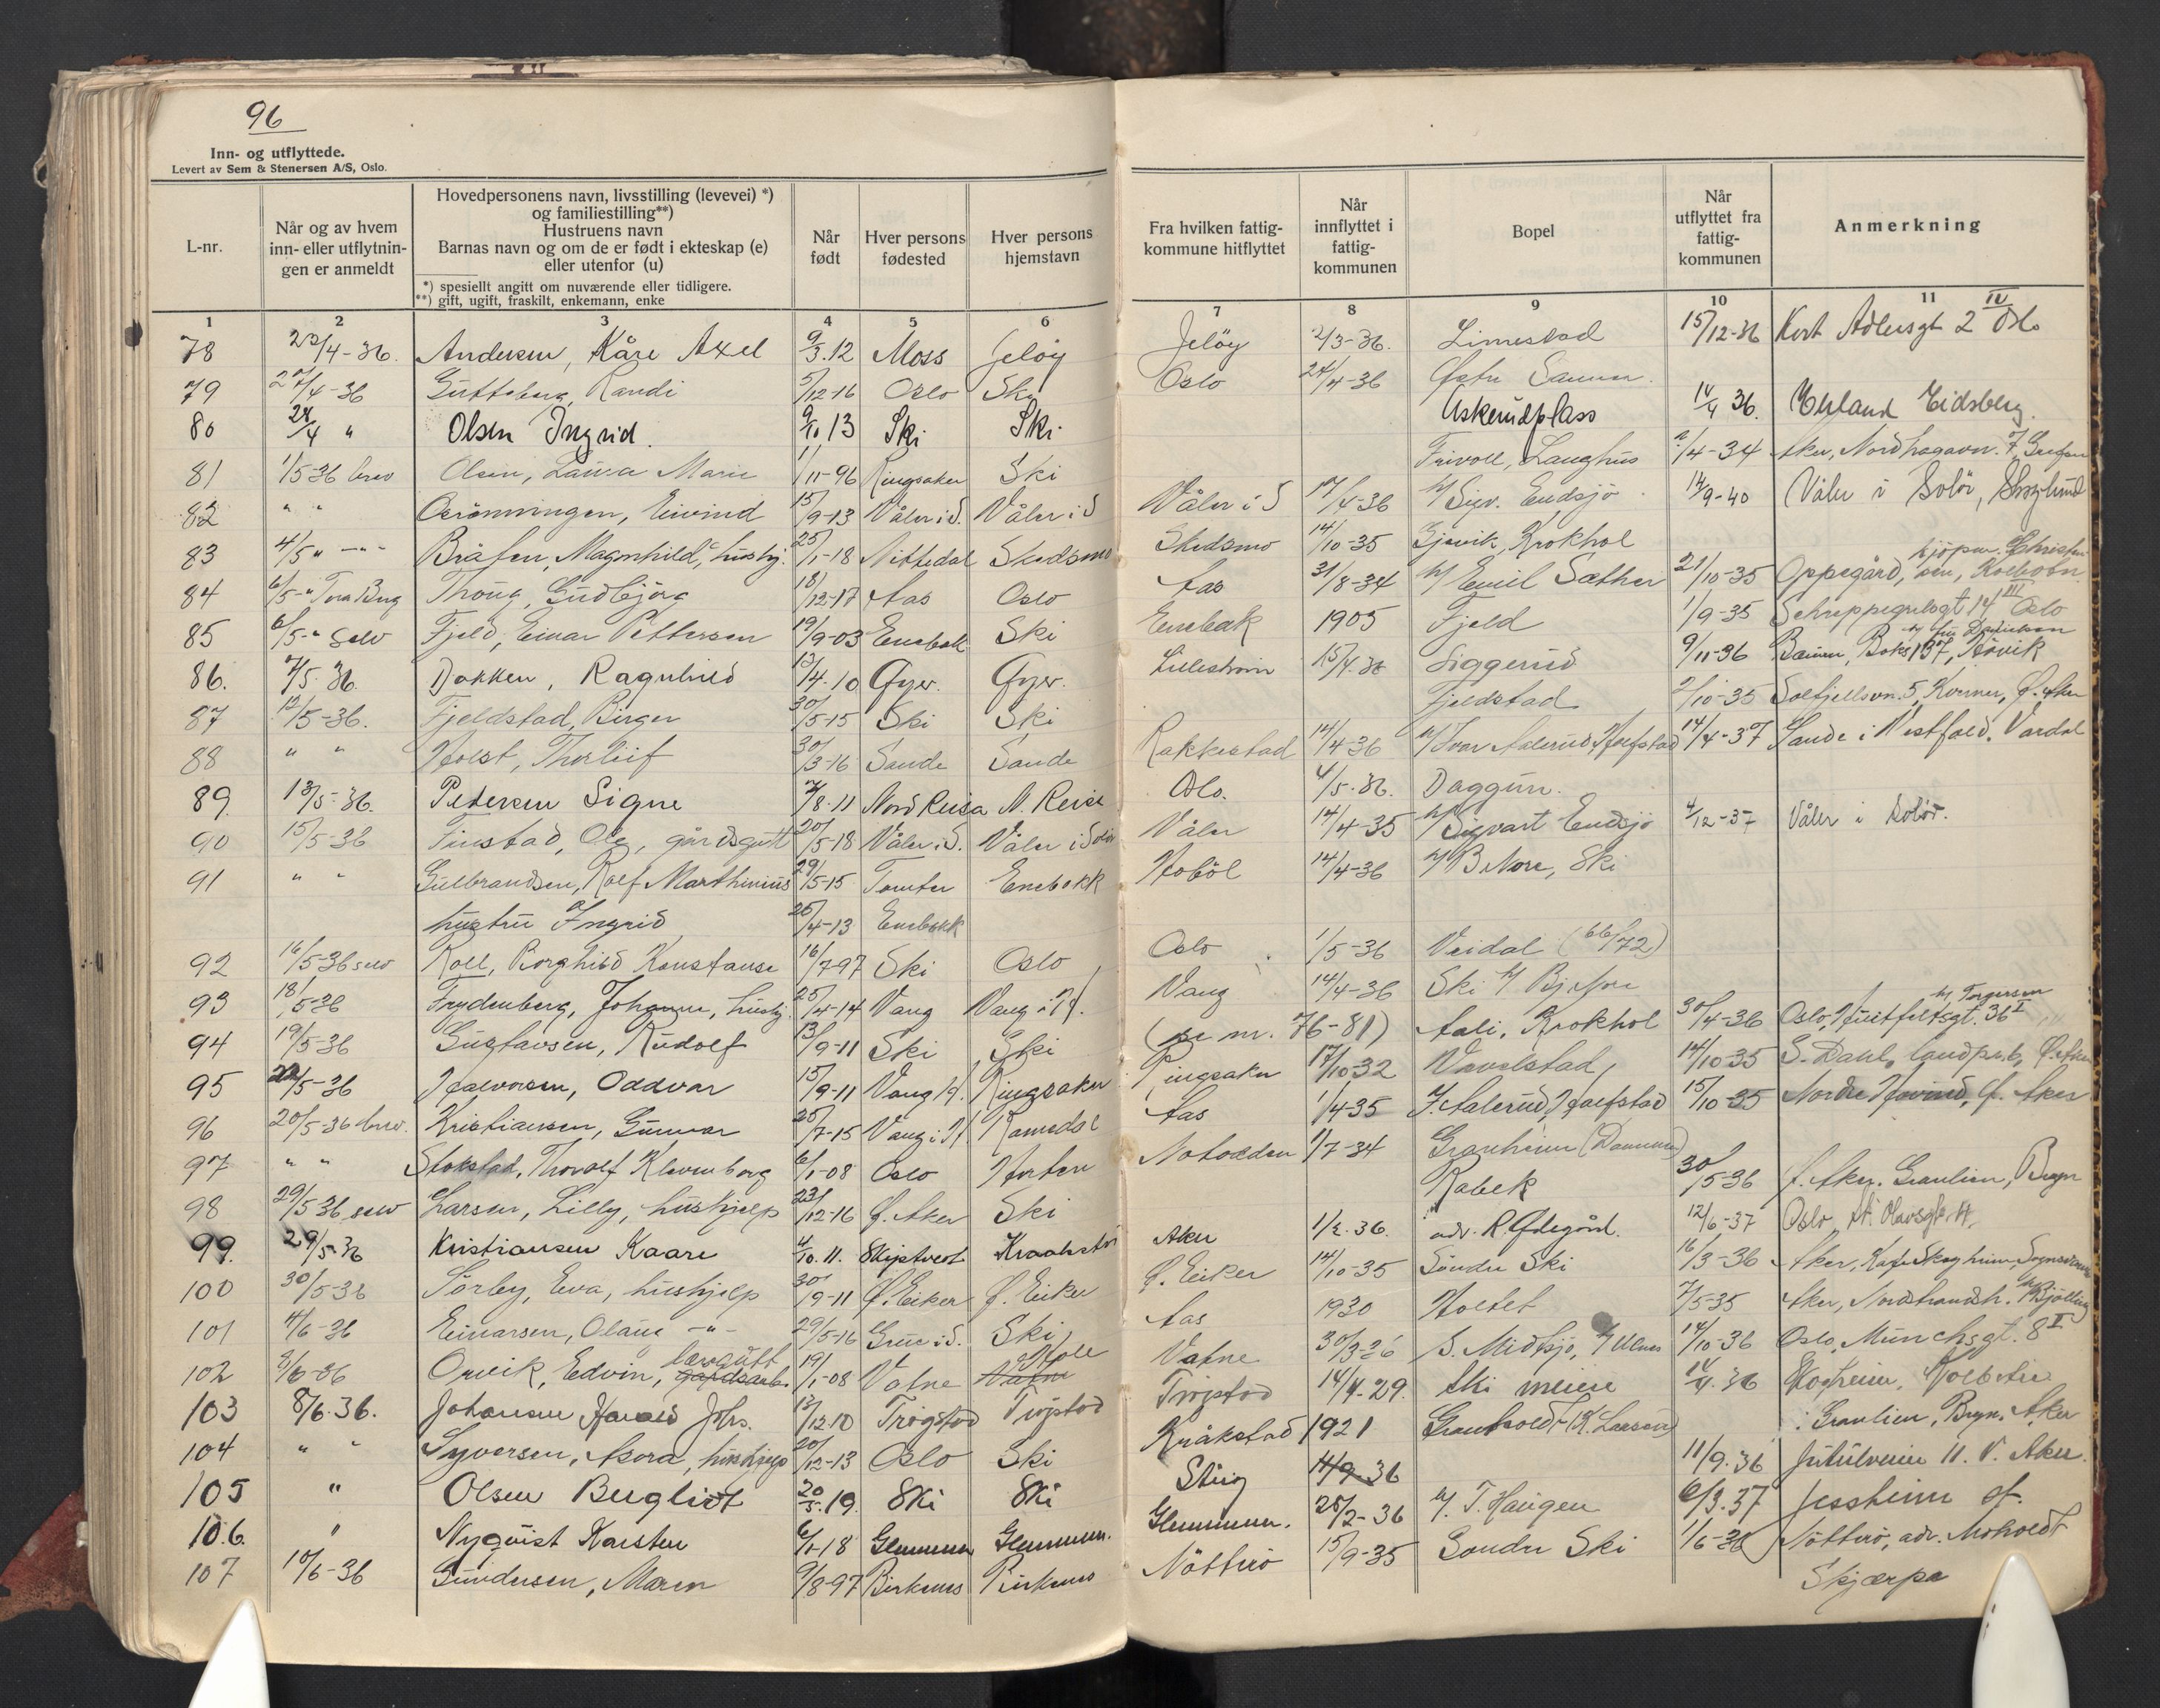 96
Inn- og utflyttede.
Levert av Sem & Stenersen A/S, Oslo.
L-nr.
Når og av hvem inn- eller utflytnin-gen er anmeldt
Hovedpersonens navn, livsstilling (levevei) *)
og familiestilling**)
Hustruens navn
Barnas navn og om de er født i ekteskap (e)
eller utenfor (u)
*) spesiellt angitt om nuværende eller tidligere.
**) gift, ugift, fraskilt, enkemann, enke
Når født
Hver persons fødested
Hver persons hjemstavn
Fra hvilken fattig-kommune hitflyttet
Når innflyttet i fattig-kommunen
Bopel
Når utflyttet fra fattig-kommunen
Anmerkning
1 2 3 4 5 6 7 8 9 10 11
78 Andersen, Kåre Axel 9/3.12 Moss Jeløy Jeløy 2/3-36. Limestad 15/12-36 Kort Adlersgt 2 IV Oslo
79 27/4-36 Randi 5/12-16 Oslo Ski Oslo 24/4-36 Østre
80 24/4 " Olsen Ingrid. 9/10 13 Ski Ski Askerudplass 14/4 36. Eidsberg.
81 1/5-36 brev Olsen, Laura Marie 1/11-96 Ringsaker Ski Trivoll, Langhus /4-34 Aker, Nordhagavn. 7,
82 " " Eivind 15/9-13 Våler i S. Våler i S Våler i S 17/4-36 h/ Sigv. Endsjø 14/9-40 Våler i Solør,
83 4/5 " -"- Bråten, Magnhild, hushj. 25/1-18 Nittedal Skedsmo Skedsmo 14/10-35 Gjevik, Krokhol
84 6/5-" Thoug, Gudbjørg 18/12-17 Aas Oslo Aas 31/8-34 h/ Emil Sæther 21/10-35 Oppegård, kjøpm. Christensen, Kolbotn
85 6/5-" selv Fjeld, Einar Pettersen 19/9-03 Enebak Ski Enebak 1905 Fjeld 1/9-35 Schweppegrellsgt 14 III Oslo
86. 7/5-36. Dokken, Ragnhild 13/4-10 Øyer. Øyer. Lillestrøm 15/4.36 Siggerud 9/11-36 Bærum, Boks 137, Høvik
87 12/5-36. Fjeldstad, Birger 30/5-15 Ski Ski Fjeldstad 2/10-35 Solfjellsvn. 5, Kværner, Ø. Aker
88 " " Holst, Thorleif 30/3-16 Sande Sande Rakkestad 14/4-36 h/ Ivar Aalerud, Hafstad 14/4-37 Sande i Vestfold. Vårdal
89. 13/5-36. Petersen Signe 7/8.11 Nord Reisa N. Reisa Oslo. 4/5.36. Daggun.
90 15/5-36 Finstad, Ole, gårdsgutt 20/5-18 Våler i S. Våler i Solør Våler 14/4-35 h/ Sigvart Endsjø 4/12-37 Våler i Solør.
91 " " Gulbrandsen, Rolf Marthinius 29/5-15 Tomter Enebakk Hobøl 14/4-36 h/ B. Nore, Ski
hustru Ingrid 26/4-13 Enebakk
92 16/5-36 selv Roll, Borghild Konstanse 16/7-97 Ski Oslo Oslo 1/5-36 Veidal (66/72)
93 18/5-36 Frydenberg, Johanne, hushj. 25/4-14 Vang Vang i H. Vang 14/4-36 Ski
94 19/5-36 Gustavsen, Rudolf 13/9-11 Ski Ski (se nr. 76-81) Aali, Krokhol 30/4-36 Oslo, Huitfeltsgt. 36 I h/ Torgersen
95 22/5-36 Halvorsen, Oddvar 15/9-11 Vang H. Ringsaker Ringsaker 17/10-32 Vevelstad, 14/10-35 S. Dahl, Ø. Aker
96 20/5-36 brev. Kristiansen, Gunnar 25/7-15 Vang i H. Romedal Aas 1/4-35 I. Aalerud, Haafstad 15/10-35 Nordre Hovind, Ø. Aker
97 " " Stokstad, Thorolf Klevenborg 6/1-08 Oslo Horten Notodden 1/7-34 Granheim
98 29/5-36 selv Larsen, Lilly, hushjelp 23/12-16 Ø. Aker Ski Rabek 30/5-36 Ø. Aker. Granlien, Bryn
99. 29/5-36 Kristiansen Kaare 4/10.11. Skiptvedt Kraakstad Aker adv. R. Ødegård. 12/6-37 Oslo, St. Olavsgt.
100 30/5-36 Sørby, Eva, hushjelp 30/9-11 Ø. Eiker Ø. Eiker Ø. Eiker 14/10-35 Søndre Ski 16/3-36 Aker, Kafe Skogheim, Sognsveien
101 4/6-36 Einarsen, Olaug -"- 29/5-16 Grue i S. Ski Aas 1930 Holtet 7/5-35 Aker, Nordstrandsh.
102 8/6-36 Orvik, Edvin, gårdsarb. 19/1-08 Vatne Vatne Vatne 30/3-36 S. Midtsjø, 14/10-36 Oslo, Munchsgt. 8 I
103 8/6.36. Johansen Harald Johs. 13/12.10 Trøgstad Trøgstad Trøgstad 14/4-29. Ski meieri 14/4.36
104 " " Syversen, Asora, hushjelp 20/12-13 Oslo Ski Kråkstad 1921 Granholdt (K. Larsen) Granlien, Bryn, Aker
105 " Olsen Bergliot 20/5.19. Ski Ski 14/9-36 11/9.36 Jutulveien 11. V. Aker.
106. " Nyquist Karsten 6/1-18 Glemmen Glemmen. Glemmen. 25/2-36 h/. T. Haugen 6/3.37 Jessheim st.
107 10/6-36 Gundersen, Maren 9/8-97 Birkenes Birkenes Nøtterø 15/9-35 Søndre Ski 1/6-36 Nøtterø, adr.
Skjærpa